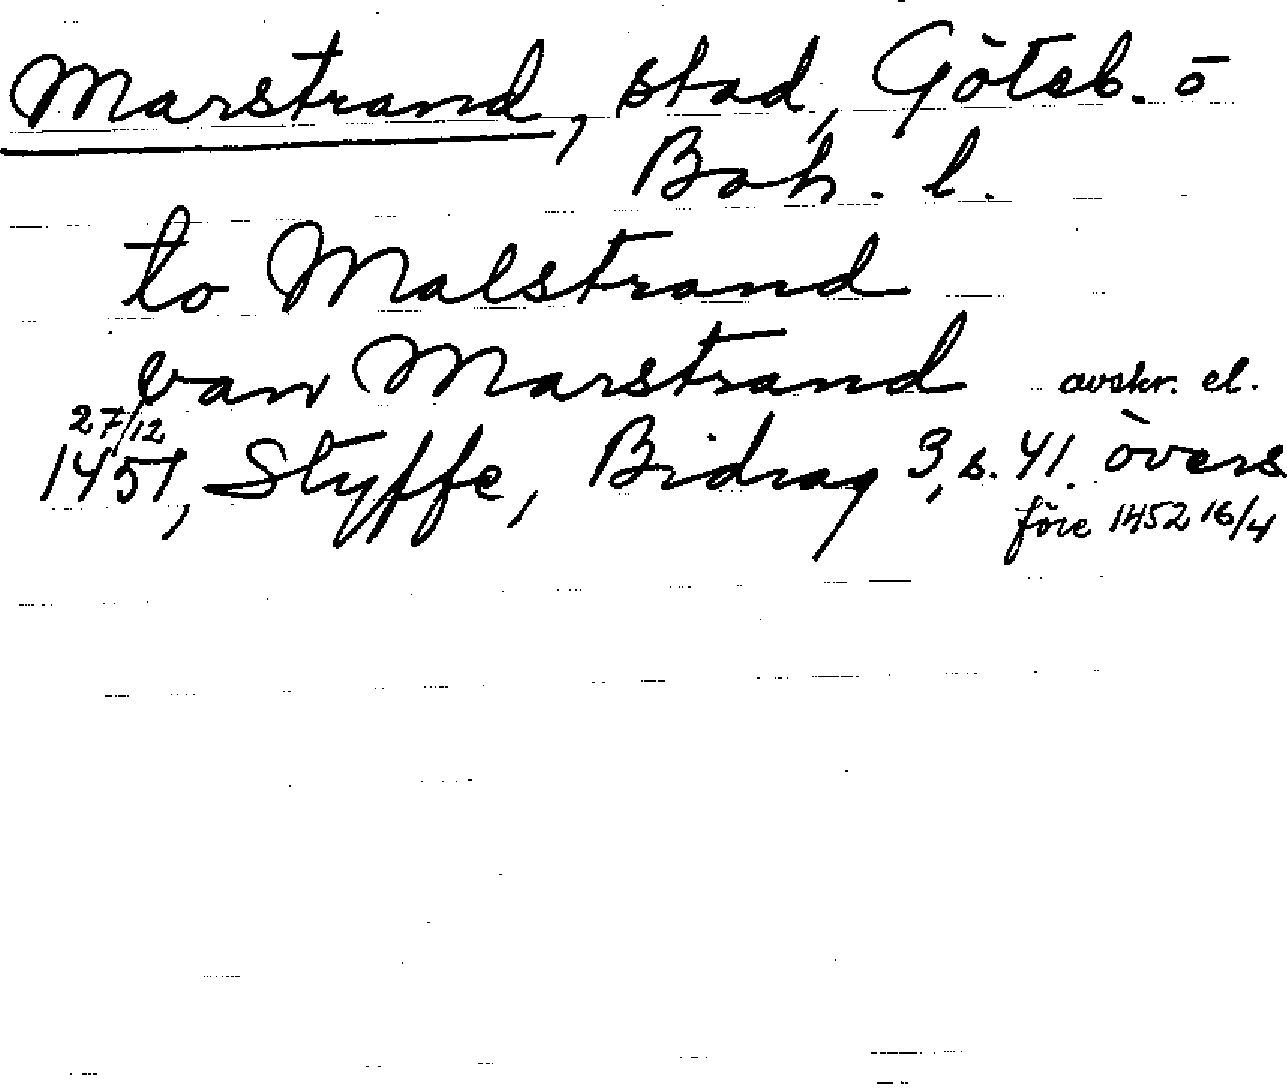 Marstrand, stad, Göteb. o
Boh. l.
to Malstrand
van Marstrand avskr. el.
27/12
1451, Styffe, Bidrag 3, s. 41. övers
före 1452 16/4